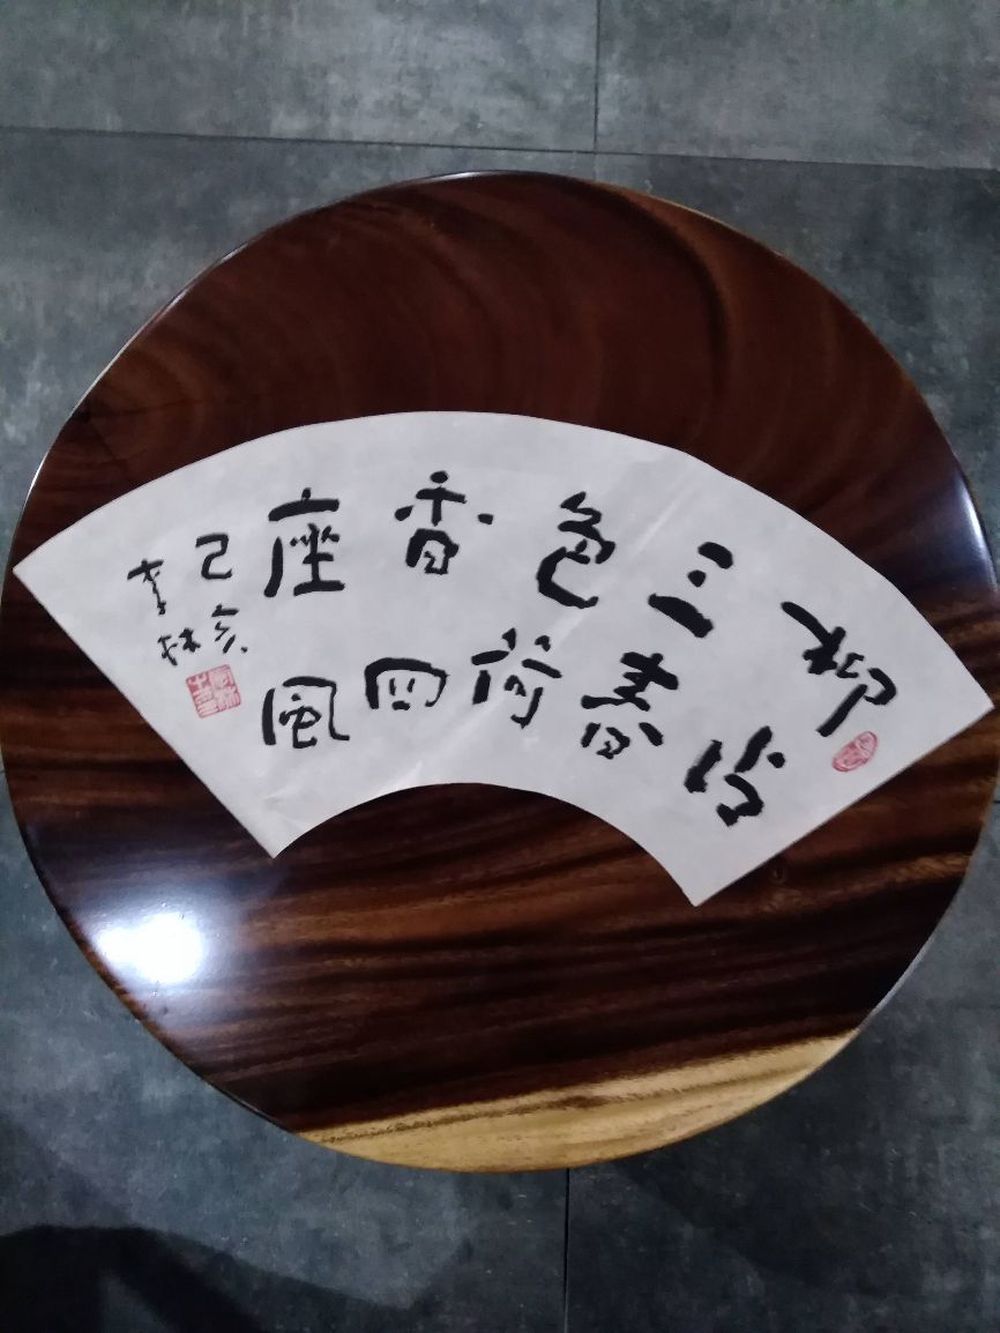 柳占
三春
色荷
香四
座風
己亥
李林